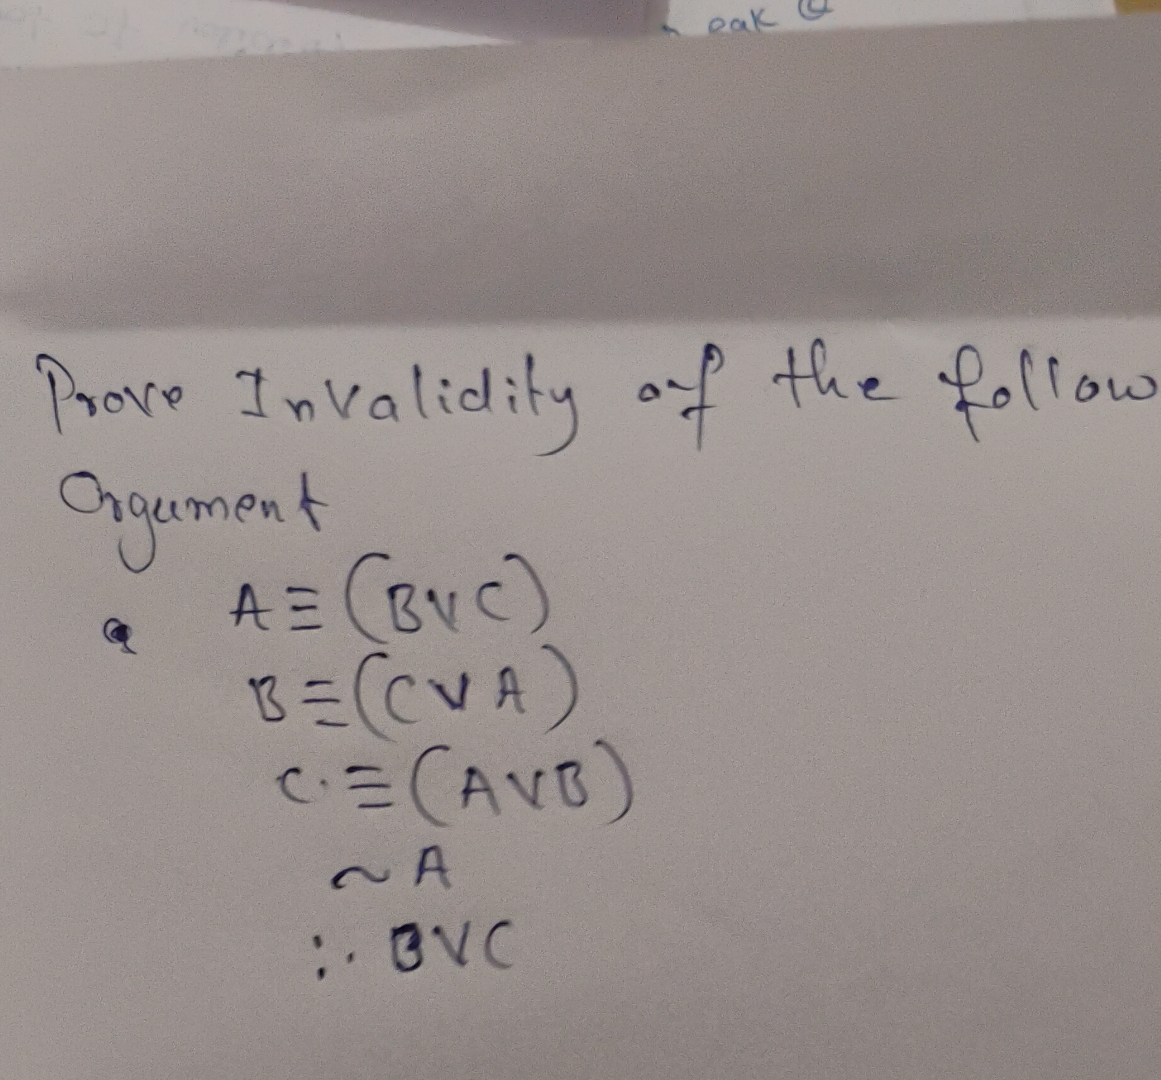 eak
Prove Invalidity of the follow
Orgument
A ≡ (B V C)
B ≡ (C V A)
C. ≡ (A V B)
~ A
∴ B V C